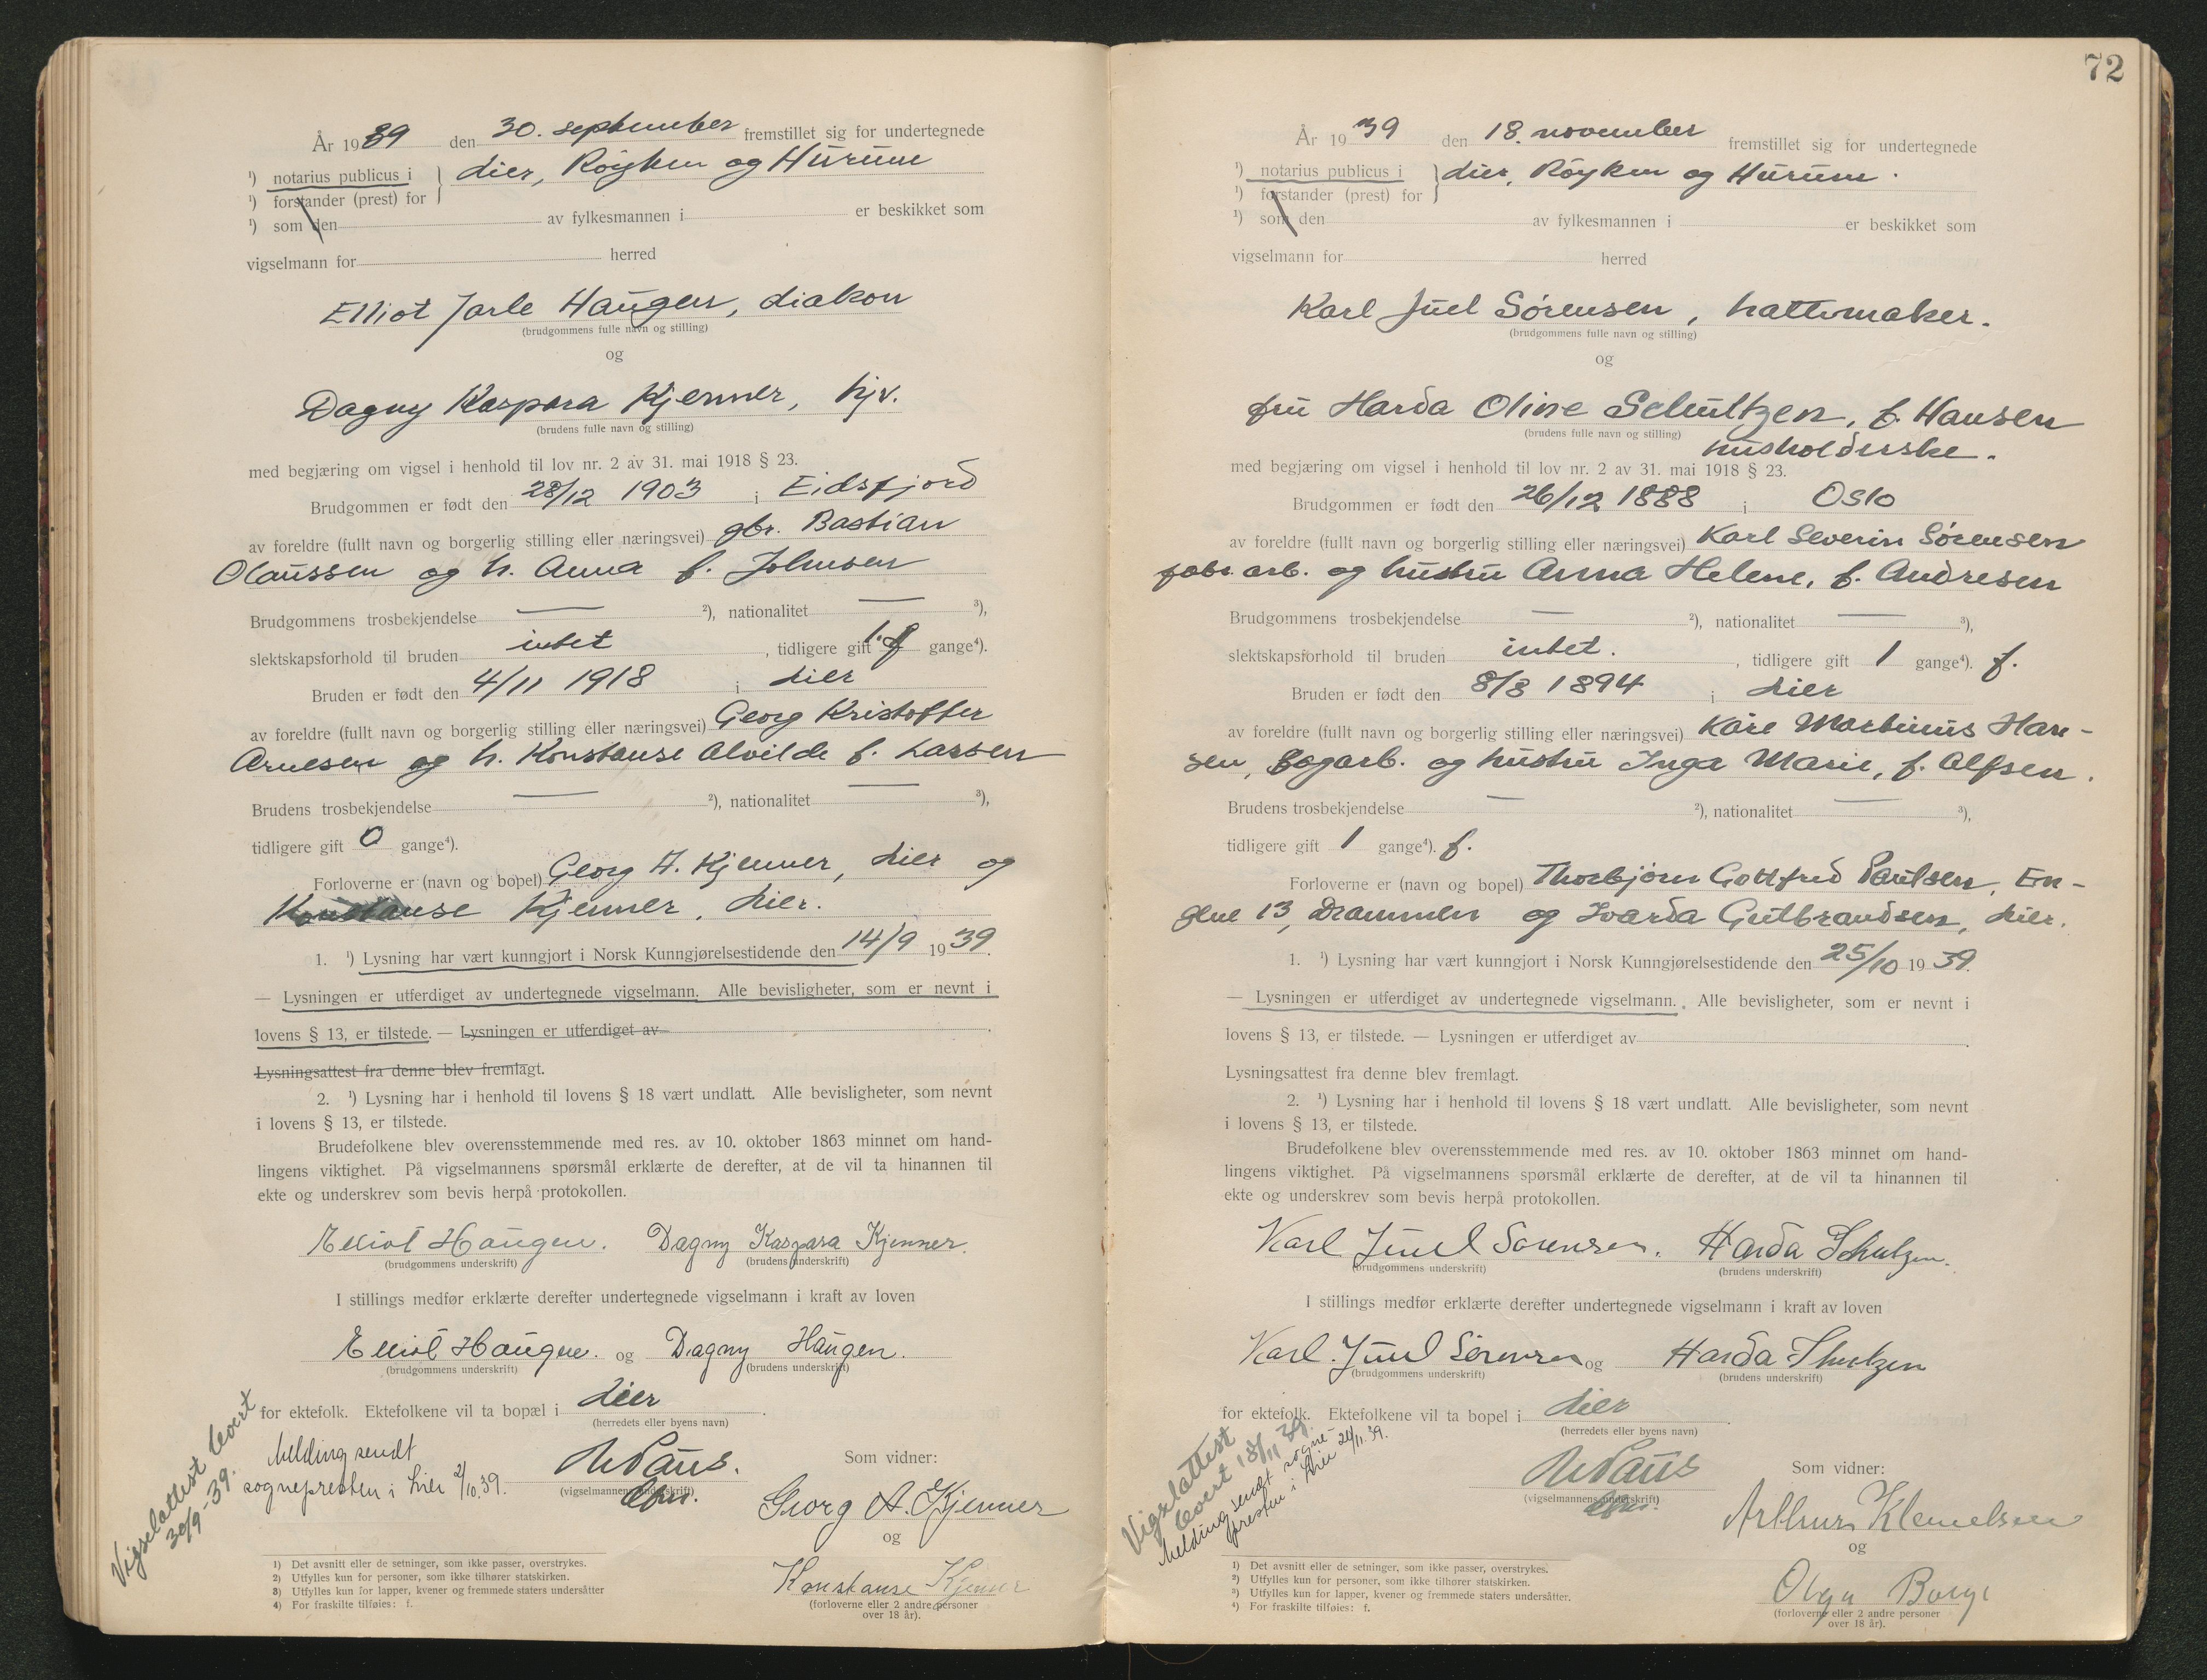 År 1939 den 30. september fremstillet sig for undertegnede
¹) notarius publicus i } Lier, Røyken og Hurum
¹) forstander (prest) for
¹) som den av fylkesmannen i er beskikket som
vigselmann for herred
Elliot Jarle Haugen, diakon
(brudgommens fulle navn og stilling)
og
Dagny Kaspara Kjenner, hjv.
(brudens fulle navn og stilling)
med begjæring om vigsel i henhold til lov nr. 2 av 31. mai 1918 § 23.
Brudgommen er født den 28/12 1903 i Eidsfjord
av foreldre (fullt navn og borgerlig stilling eller næringsvei) gbr. Bastian
Olaussen og h. Anna f. Johnsen
Brudgommens trosbekjendelse — ²), nationalitet — ³),
slektskapsforhold til bruden intet, tidligere gift 1. f gange⁴).
Bruden er født den 4/11 1918 i Lier
av foreldre (fullt navn og borgerlig stilling eller næringsvei) Georg Kristoffer
Arnesen og h. Konstanse Alvilde f. Larsen
Brudens trosbekjendelse — ²), nationalitet — ³),
tidligere gift 0 gange⁴).
Forloverne er (navn og bopel) Georg A. Kjenner, Lier og
Konstanse Kjenner, Lier.
1. ¹) Lysning har vært kunngjort i Norsk Kunngjørelsestidende den 14/9 1939.
— Lysningen er utferdiget av undertegnede vigselmann. Alle bevisligheter, som er nevnt i
lovens § 13, er tilstede. — Lysningen er utferdiget av
Lysningsattest fra denne blev fremlagt.
2. ¹) Lysning har i henhold til lovens § 18 vært undlatt. Alle bevisligheter, som nevnt
i lovens § 13, er tilstede.
Brudefolkene blev overensstemmende med res. av 10. oktober 1863 minnet om hand-
lingens viktighet. På vigselmannens spørsmål erklærte de derefter, at de vil ta hinannen til
ekte og underskrev som bevis herpå protokollen.
Elliot Haugen. Dagny Kaspara Kjenner.
(brudgommens underskrift) (brudens underskrift)
I stillings medfør erklærte derefter undertegnede vigselmann i kraft av loven
Elliot Haugen. og Dagny Haugen.
(brudgommens underskrift) (brudens underskrift)
for ektefolk. Ektefolkene vil ta bopæl i Lier.
(herredets eller byens navn)
Vigselattest levert
30/9-39.
Melding sendt
sognepresten i Lier 2/10.39.
Paus.
(vigselmannens underskrift)
Som vidner:
Georg A. Kjenner
og
Konstanse Kjenner
(forloverne eller 2 andre personer
over 18 år).
1) Det avsnitt eller de setninger, som ikke passer, overstrykes.
2) Utfylles kun for personer, som ikke tilhører statskirken.
3) Utfylles kun for lapper, kvener og fremmede staters undersåtter
4) For fraskilte tilføies: f.
72
År 1939 den 18. november fremstillet sig for undertegnede
¹) notarius publicus i } Lier, Røyken og Hurum.
¹) forstander (prest) for
¹) som den av fylkesmannen i er beskikket som
vigselmann for herred
Karl Juel Sørensen, hattemaker.
(brudgommens fulle navn og stilling)
og
fru Harda Oline Schultzen, f. Hansen
(brudens fulle navn og stilling) husholderske.
med begjæring om vigsel i henhold til lov nr. 2 av 31. mai 1918 § 23.
Brudgommen er født den 26/12 1888 i Oslo
av foreldre (fullt navn og borgerlig stilling eller næringsvei) Karl Severin Sørensen
fabr. arb. og hustru Anna Helene, f. Andresen
Brudgommens trosbekjendelse — ²), nationalitet — ³),
slektskapsforhold til bruden intet., tidligere gift 1 gange⁴). f.
Bruden er født den 8/8 1894 i Lier
av foreldre (fullt navn og borgerlig stilling eller næringsvei) Kåre Martinius Han-
sen, sagarb. og hustru Inga Marie, f. Alfsen.
Brudens trosbekjendelse — ²), nationalitet — ³),
tidligere gift 1 gange⁴). f.
Forloverne er (navn og bopel) Thorbjørn Gottfred Paulsen, En-
gene 13, Drammen og Ivarda Gulbrandsen, Lier.
1. ¹) Lysning har vært kunngjort i Norsk Kunngjørelsestidende den 25/10 1939.
— Lysningen er utferdiget av undertegnede vigselmann. Alle bevisligheter, som er nevnt i
lovens § 13, er tilstede. — Lysningen er utferdiget av
Lysningsattest fra denne blev fremlagt.
2. ¹) Lysning har i henhold til lovens § 18 vært undlatt. Alle bevisligheter, som nevnt
i lovens § 13, er tilstede.
Brudefolkene blev overensstemmende med res. av 10. oktober 1863 minnet om hand-
lingens viktighet. På vigselmannens spørsmål erklærte de derefter, at de vil ta hinannen til
ekte og underskrev som bevis herpå protokollen.
Karl Juul Sørensen. Harda Schulzen.
(brudgommens underskrift) (brudens underskrift)
I stillings medfør erklærte derefter undertegnede vigselmann i kraft av loven
Karl. Juul Sørensen og Harda Shulzen
(brudgommens underskrift) (brudens underskrift)
for ektefolk. Ektefolkene vil ta bopel i Lier.
(herredets eller byens navn)
Vigselattest
levert 18/11 39.
Melding sendt sogne-
presten i Lier 24/11.39.
Paus
(vigselmannens underskrift)
Som vidner:
Arthur Klemetsen
og
Olga Borge
(forloverne eller 2 andre personer
over 18 år).
1) Det avsnitt eller de setninger, som ikke passer, overstrykes.
2) Utfylles kun for personer, som ikke tilhører statskirken.
3) Utfylles kun for lapper, kvener og fremmede staters undersåtter.
4) For fraskilte tilføies: f.